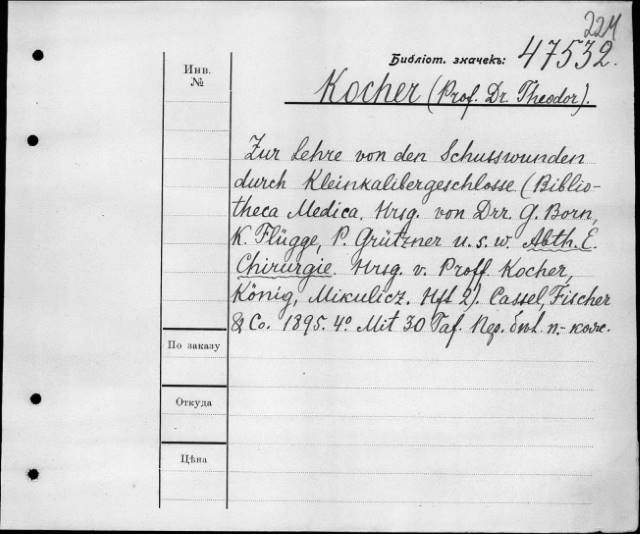 224
Библіот. значекъ: 47532.
Инв.
№
Kocher (Prof. Dr. Theodor).
Zur Lehre von den Schusswunden
durch Kleinkalibergeschosse (Biblio-
theca Medica. Hrsg. von Drr. G. Born,
K. Flügge, P. Grützner u. s. w. Abth. E.
Chirurgie. Hrsg. v. Proff. Kocher,
König, Mikulicz. Hft 2). Cassel, Fischer
& Co. 1895. 4° Mit 30 Taf. Пер. п.-кож.
По заказу
Откуда
Цѣна